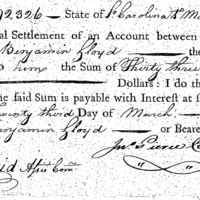 92326 — State of S. Carolina
al Settlement of an Account between
Benjamin Floyd — the
to him the Sum of Thirty three
Dollars: I do th
he said Sum is payable with Interest at f
wenty third Day of March
enjamin Floyd — or Beare
Jno. Pierce